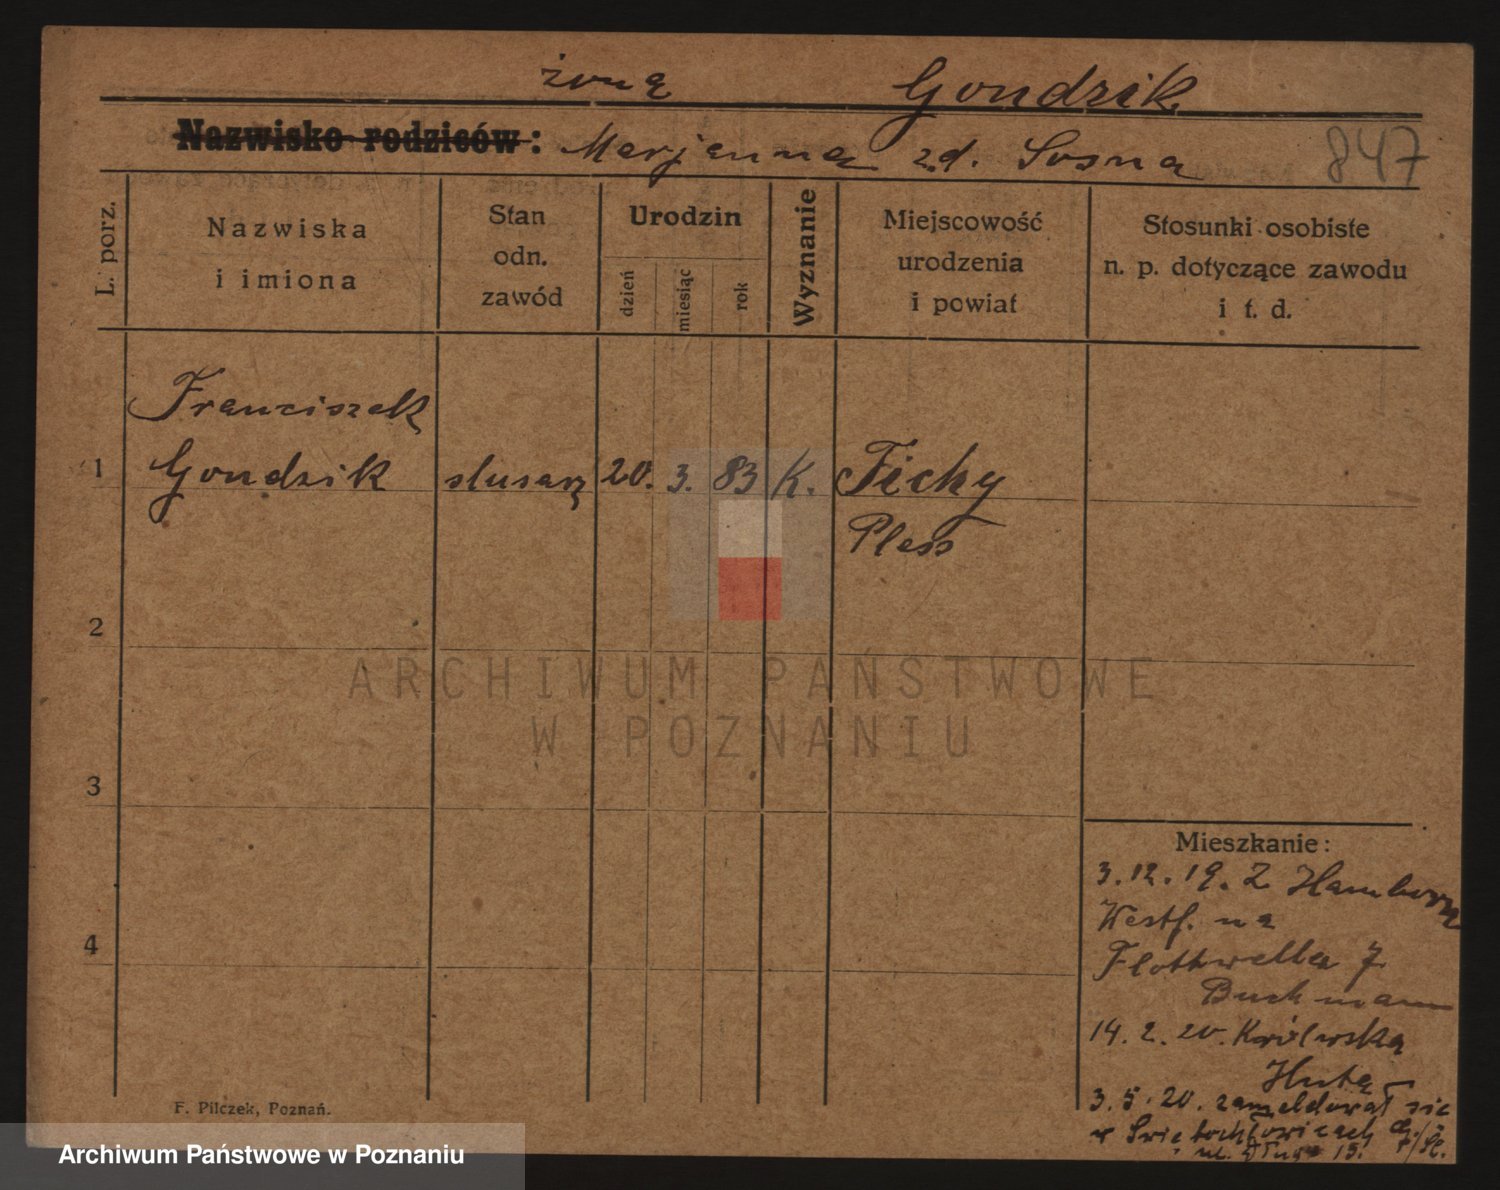 żona Gondzik
Nazwisko rodziców: Marjanna zd. Sosna 847
L. porz.
Nazwiska
i imiona
Stan
odn.
zawód
Urodzin
dzień
miesiąc
rok
Wyznanie
Miejscowość
urodzenia
i powiat
Stosunki osobiste
n. p. dotyczące zawodu
i t. d.
Franciszek
1 Gondzik slusarz 20. 3. 83 K. Tichy
Pless
2
ARCHIWUM PAŃSTWOWE
W POZNANIU
3
4
Mieszkanie:
3.12.19. Z Hamborna
Westf. na
Flottwella 7
Buchmann
14.2.20. Królwska
Huta
3.5.20. zameldował sie
w Świętochłowicach
ul. Długa 15.
F. Pilczek, Poznań.
Archiwum Państwowe w Poznaniu